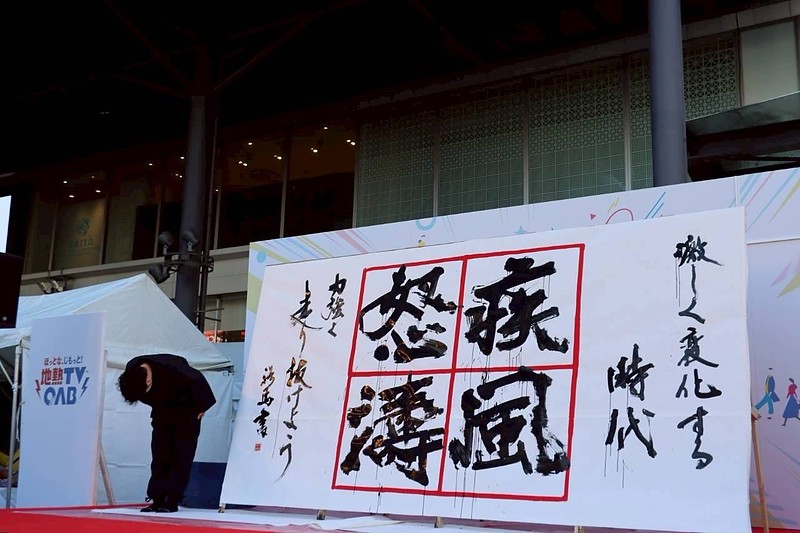 激しく変化する
時代
疾風
怒濤
力強く
走り抜けよう
書
ほっとな、じもっと!
地熱TV
OAB